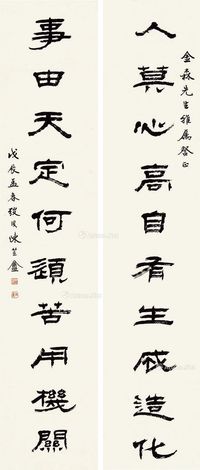 金森先生雅屬詧正
人莫心高自有生成造化
事由天定何須苦用機關
戊辰孟春